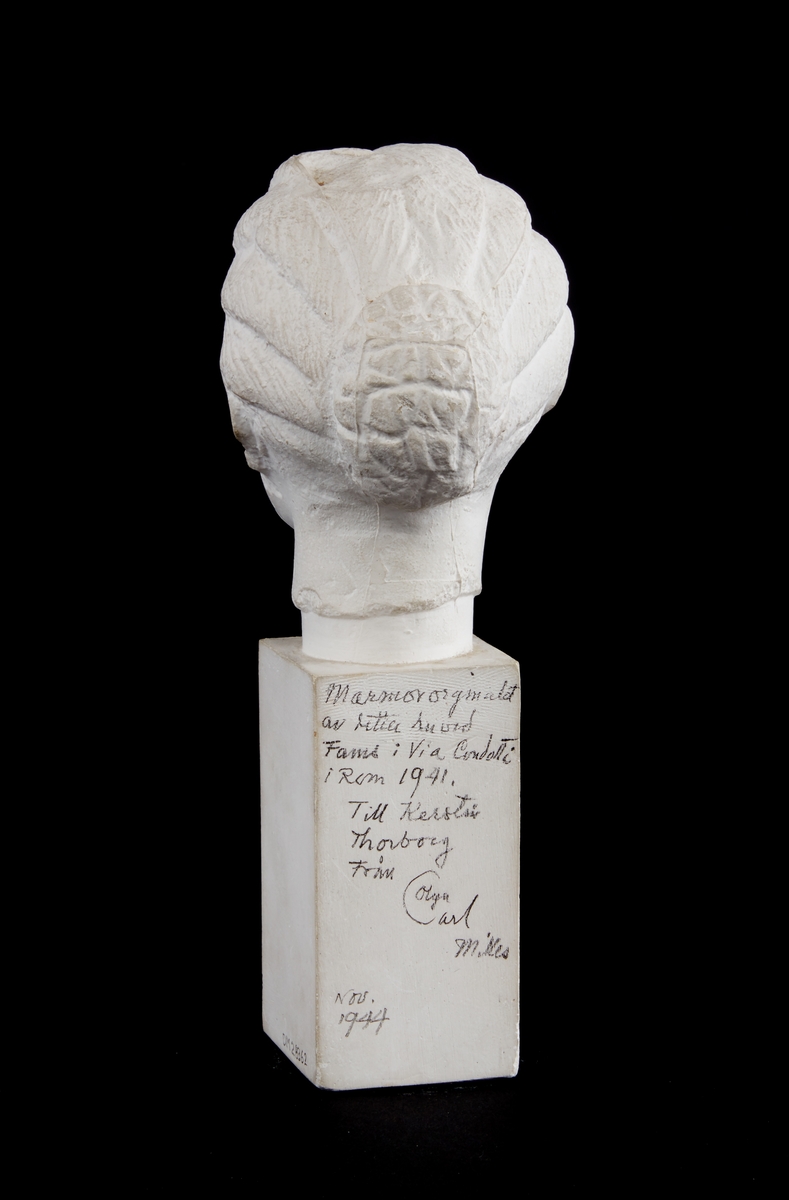 Marmororginalet
av detta huvud
Fanns i Via Condotti
i Rom 1941.
Till Kerstin
Thorborg
Från
Olga
Carl
Milles
Nov.
1944
DM28362